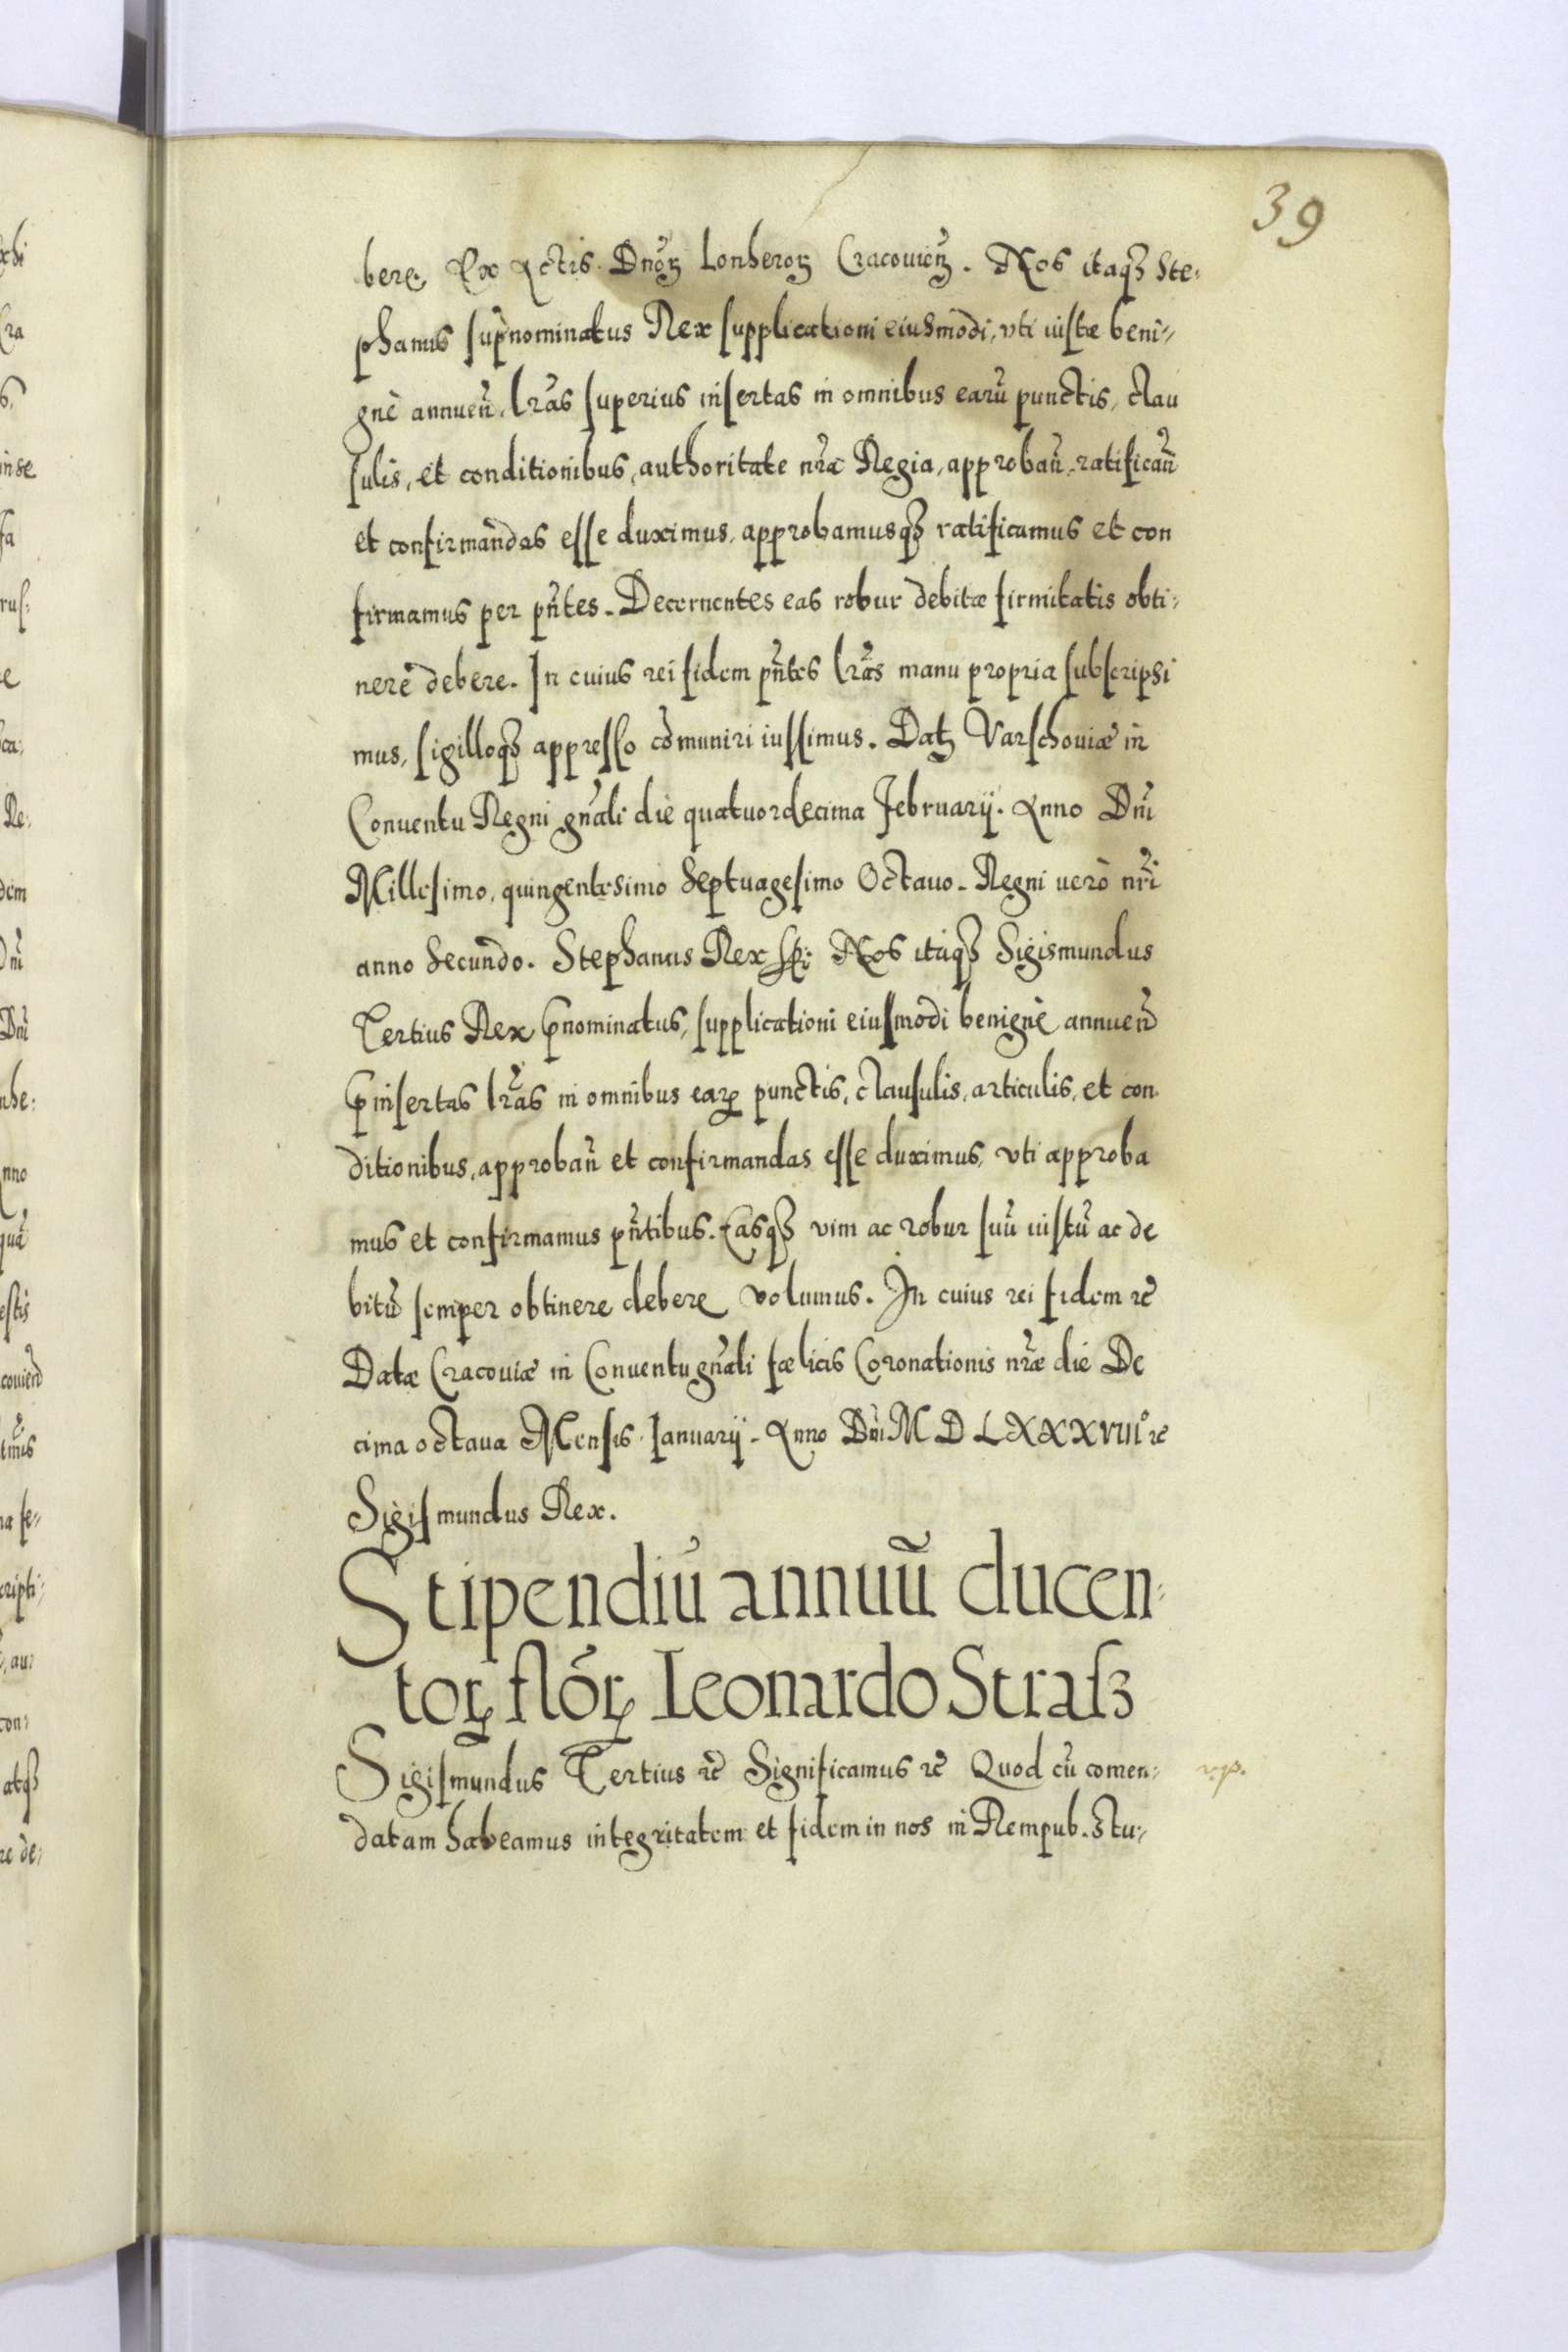 39
bere. Ex Actis Dnorꝝ Lonherorꝝ Cracouienꝝ. Nos itaqꝫ Ste:
phanus sup̄nominatus Rex supplicationi eiusmodi, vti iustæ beni-
gnè annuen̄. Lr̃as superius insertas in omnibus earū punctis, clau
sulis, et conditionibus, authoritate nr̃a Regia, approban̄. ratifican̄
et confirmandas esse duximus, approbamusqꝫ ratificamus et con
firmamus per pn̄tes. Decernentes eas robur debitæ firmitatis obti:
nere debere. In cuius rei fidem pn̄tes lr̃as manu propria subscripsi
mus, sigilloqꝫ appresso cōmuniri iussimus. Datꝫ Varschouiæ in
Conuentu Regni gn̄ali die quatuordecima Februarij. Anno Dn̄i
Millesimo, quingentesimo Septuagesimo Octauo. Regni uerò nr̃i
anno Secundo. Stephanus Rex sst: Nos itaqꝫ Sigismundus
Tertius Rex p̄nominatus, supplicationi eiusmodi benignè annuen̄
p̄insertas lr̃as in omnibus earꝝ punctis, clausulis, articulis, et con
ditionibus, approban̄ et confirmandas esse duximus, vti approba
mus et confirmamus pn̄tibus. Easqꝫ vim ac robur suū iustū ac de
bitū semper obtinere debere volumus. In cuius rei fidem ꝛc̄
Datæ Cracouiæ in Conuentu gn̄ali fœlicis Coronationis nr̃æ die De
cima octaua Mensis Ianuarij. Anno Dn̄i M D LXXXVIII° ꝛc
Sigismundus Rex.
Stipendiū annuū ducen:
torꝝ flōrꝝ Leonardo Strasz
Sigismundus Tertius ꝛc̄ Significamus ꝛc̄ Quod cū comen:
datam habeamus integritatem et fidem in nos in Rempub. Stu: